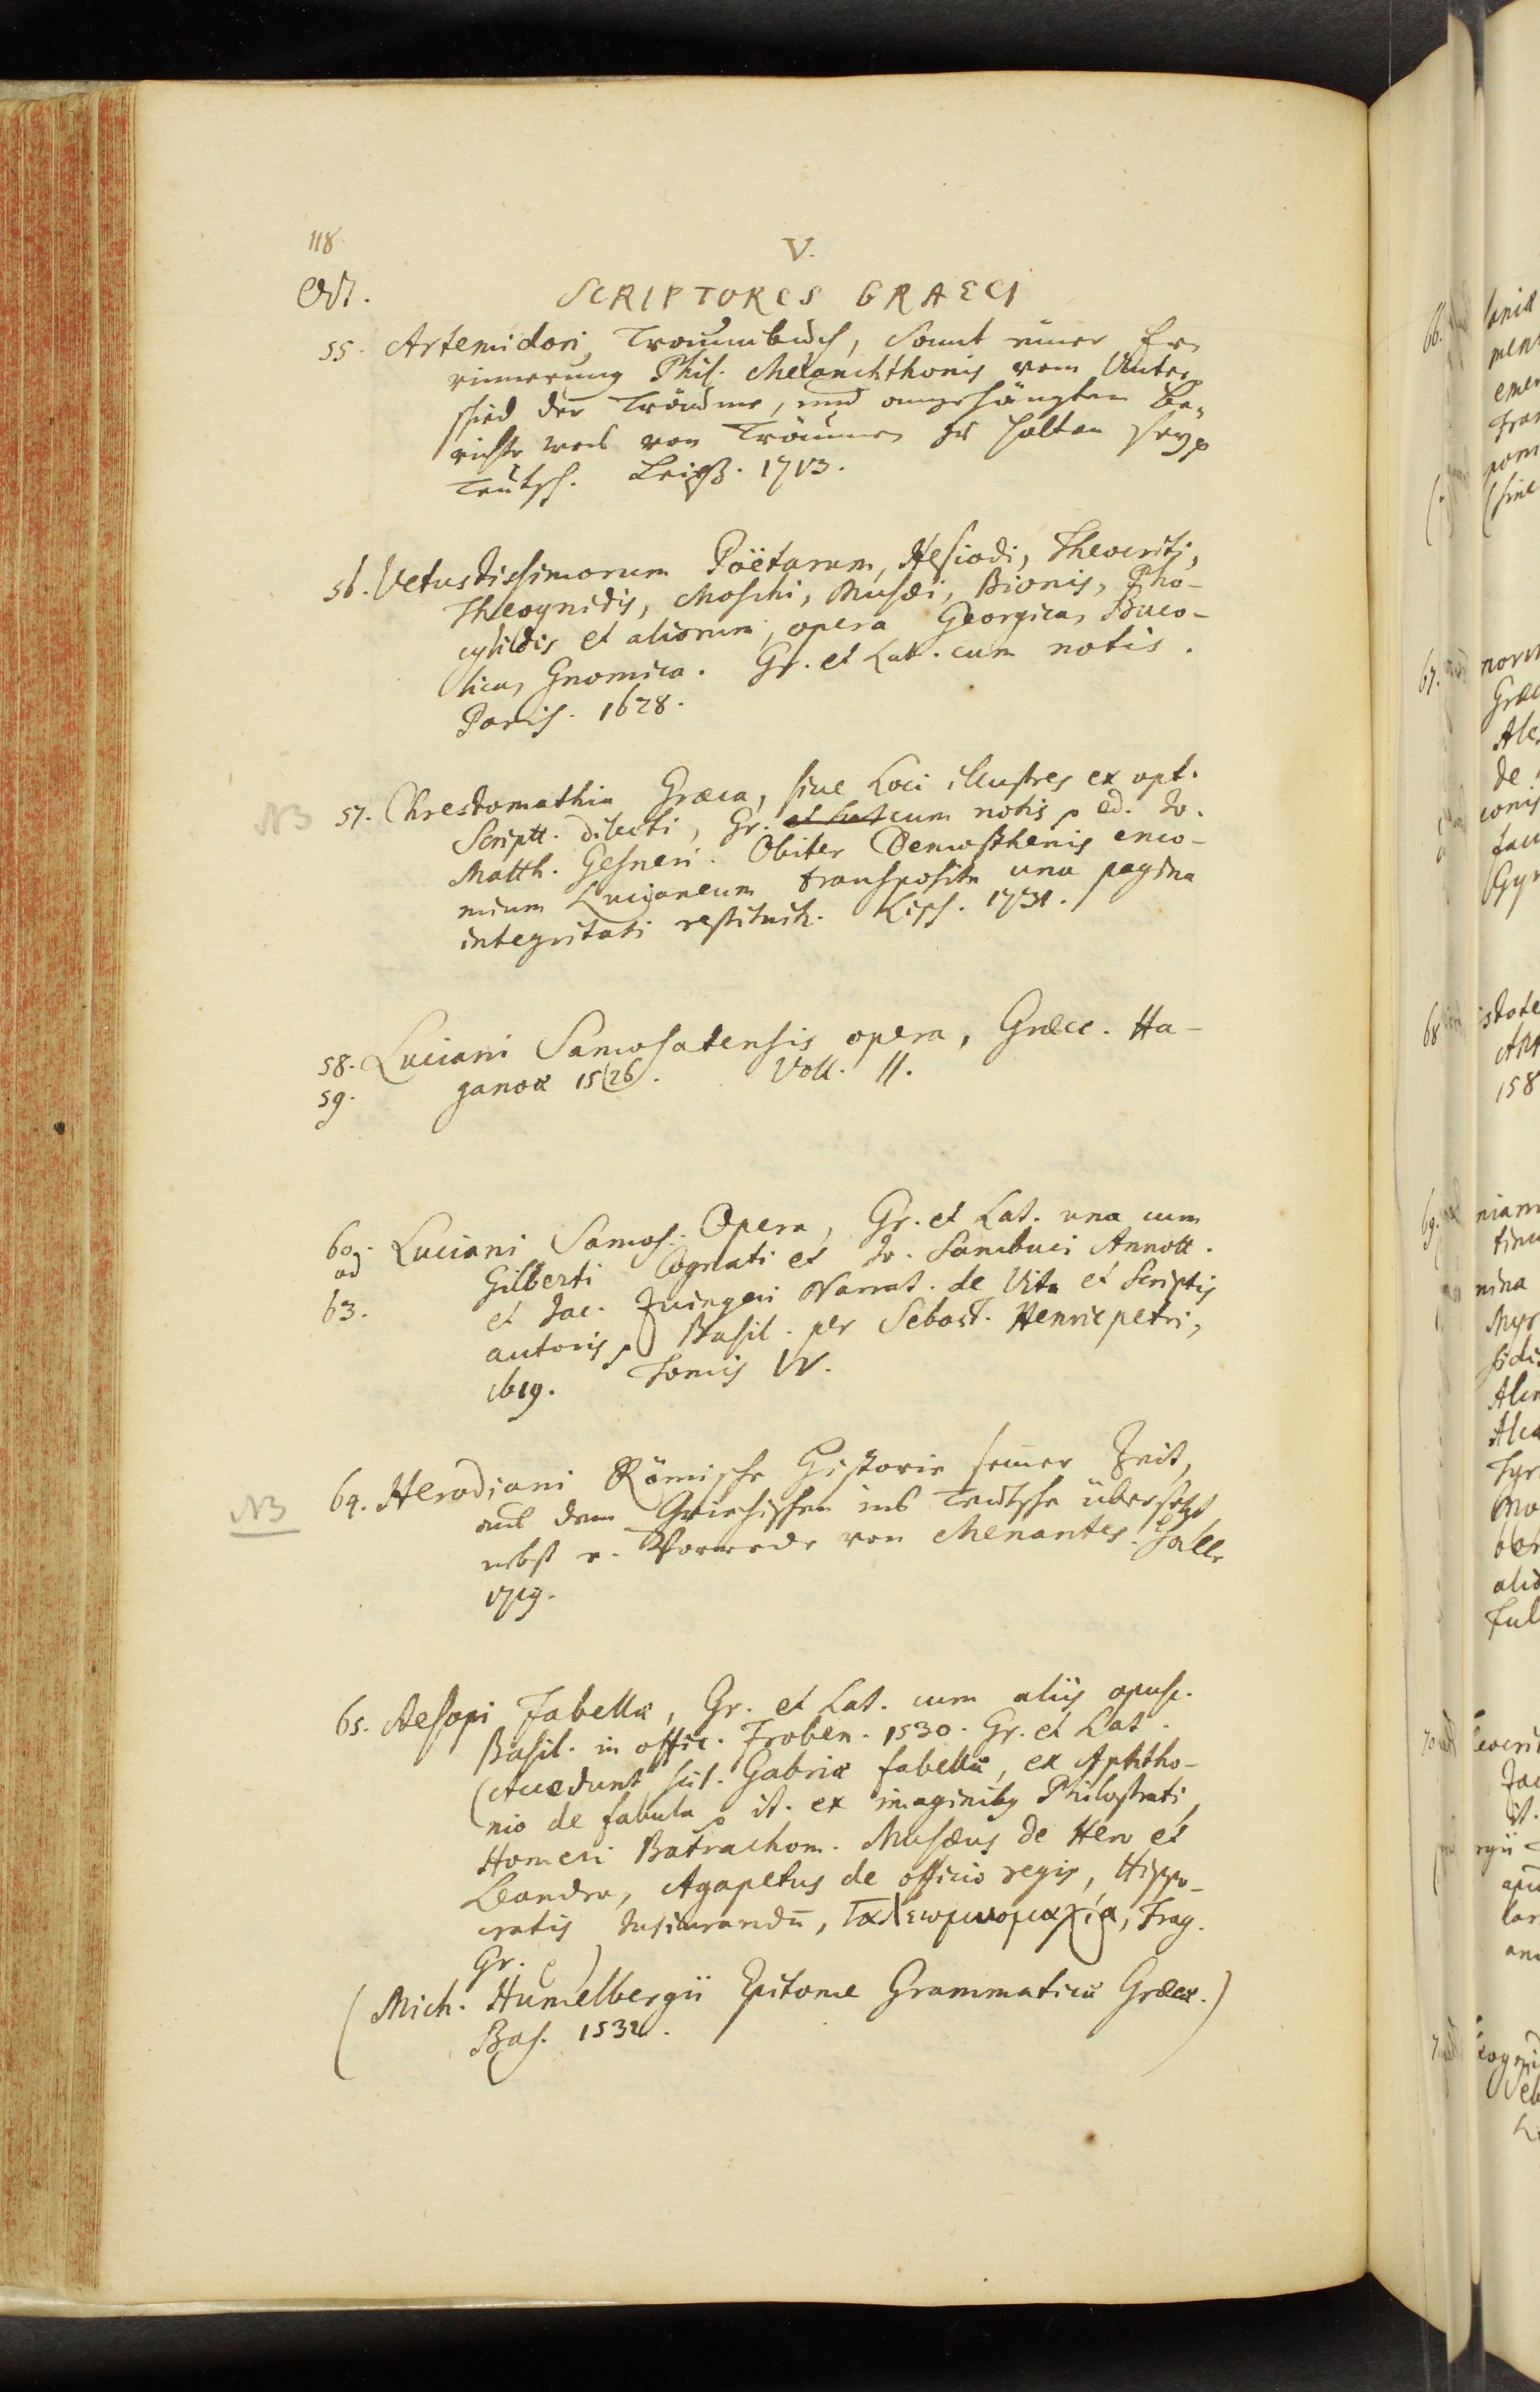 118.
V.
Oct. SCRIPTORES GRAECI
55. Artemidori, Traumbuch, samt einer Er-
rinnerung Phil. Melanchthonis vom Unter-
schied der Träume, und angehängten Be-
richte was von Träumen zu halten sey
Teutsch. Leipz. 1713.
56. Vetustissimorum Poëtarum, Hesiodi, Theocriti,
Theognidis, Moschi, Musæi, Bionis, Pho-
cylidis et aliorum, opera Georgica, Buco-
lica, Gnomica. Gr. et Lat. cum notis.
Paris. 1628.
NB 57. Chrestomathia Græca, sive Loci illustres ex opt.
Scriptt. dilecti, Gr. et Lat cum notis ed. Jo.
Matth. Gesneri. Obiter Demosthenis enco-
mium Lucianeum transposita una pagina
integritati restituit. Lips. 1731.
58. Luciani Samosatensis opera, Græce. Ha-
59. ganoæ 1526. Voll. II.
60. Luciani Samos. Opera, Gr. et Lat. una cum
ad Gilberti Cognati et Jo. Sambuci Annott.
63. et Jac. Zuingeri Narrat. de Vita et Scriptis
autoris, Basil. per Sebast. Henricpetri,
1619. Tomis IV.
NB 64. Herodiani Römische Historie seiner Zeit,
aus dem Griechischen ins Teutsche übersetzt
nebst e. Vorrede von Menantes. Halle
1719.
65. Aesopi Fabellæ, Gr. et Lat. cum aliis opusc.
Basil. in offic. Froben. 1530. Gr. et Lat.
(Accedunt scil. Gabriæ fabellæ, ex Aphtho-
nio de fabula it. ex imaginibus Philostrati,
Homeri Batrachom. Musæus de Hero et
Leandro, Agapetus de officio regis, Hippo-
cratis Jusjurandū, Γαλεωμυομαχία, Trag.
Gr.)
(Mich. Humelbergii Epitome Grammaticæ Græcæ.)
Bas. 1532.